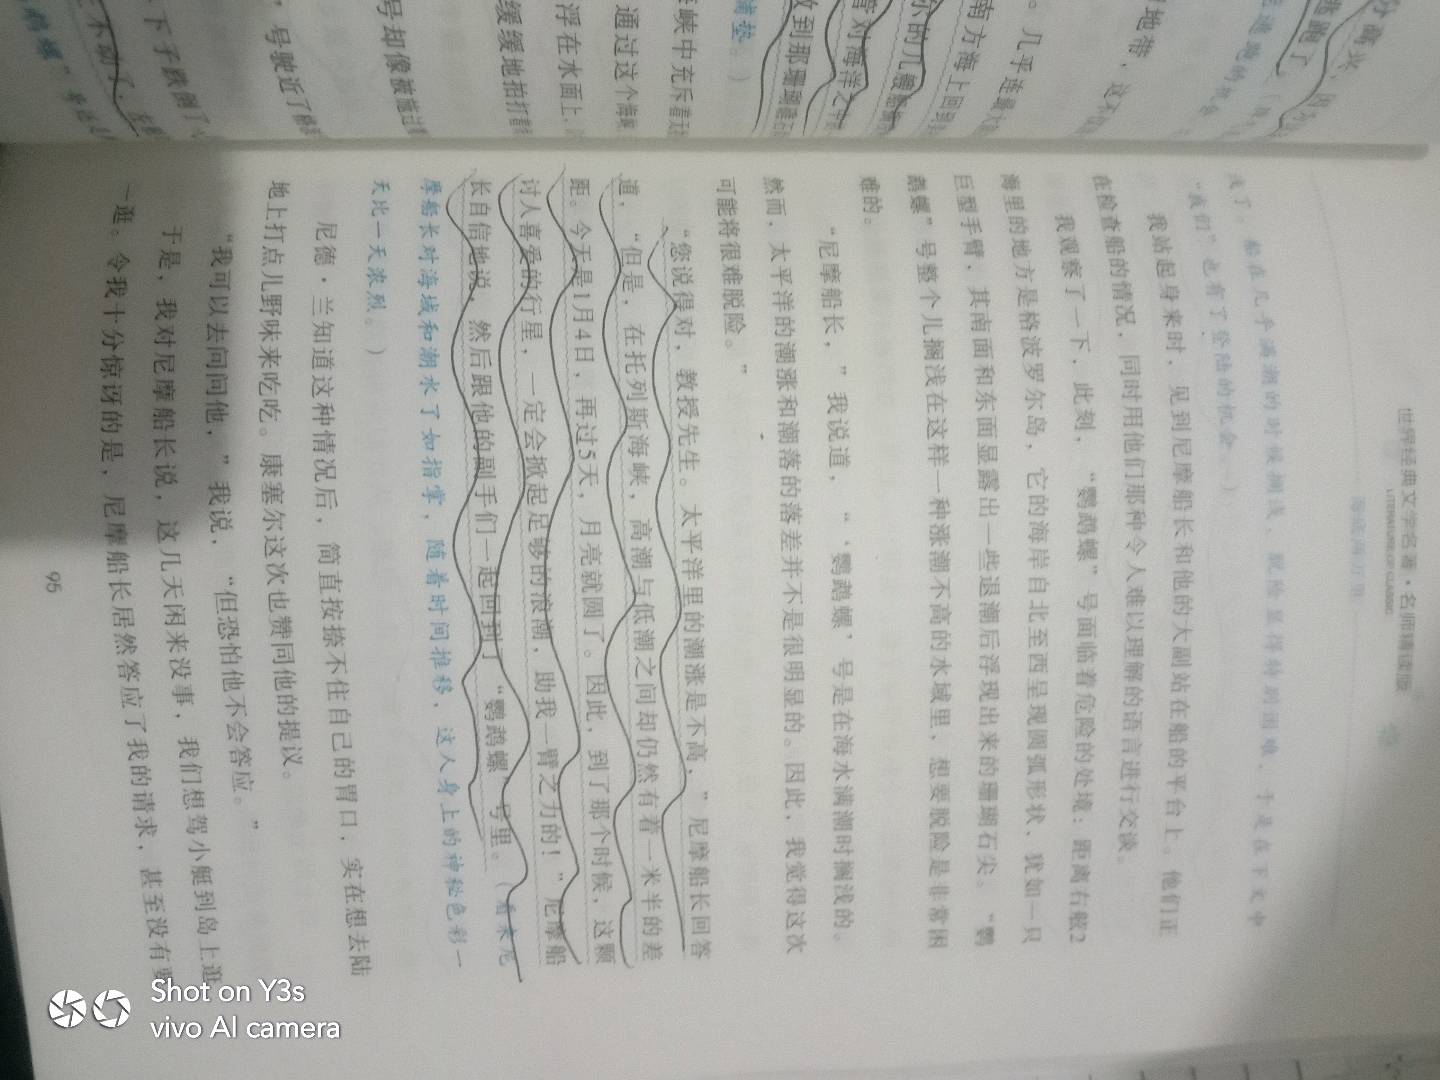 世界经典文学名著·名师精读版
LITERATURE OF CLASSIC
海底两万里
浅了。船在几乎满潮的时候搁浅，脱险显得特别困难，于是在下文中
“我们”也有了登陆的机会。）
我站起身来时，见到尼摩船长和他的大副站在船的平台上。他们正
在检查船的情况，同时用他们那种令人难以理解的语言进行交谈。
我观察了一下，此刻，“鹦鹉螺”号面临着危险的处境：距离右舷2
海里的地方是格波罗尔岛，它的海岸自北至西呈现圆弧形状，犹如一只
巨型手臂，其南面和东面显露出一些退潮后浮现出来的珊瑚石尖。“鹦
鹉螺”号整个儿搁浅在这样一种涨潮不高的水域里，想要脱险是非常困
难的。
“尼摩船长，”我说道，“‘鹦鹉螺’号是在海水满潮时搁浅的。
然而，太平洋的潮涨和潮落的落差并不是很明显的。因此，我觉得这次
可能将很难脱险。”
“您说得对，教授先生。太平洋里的潮涨是不高，”尼摩船长回答
道，“但是，在托列斯海峡，高潮与低潮之间却仍然有着一米半的差
距。今天是1月4日，再过5天，月亮就圆了。因此，到了那个时候，这颗
讨人喜爱的行星，一定会掀起足够的浪潮，助我一臂之力的！”尼摩船
长自信地说，然后跟他的副手们一起回到了“鹦鹉螺”号里。（看来尼
摩船长对海域和潮水了如指掌，随着时间推移，这人身上的神秘色彩一
天比一天浓烈。）
尼德·兰知道这种情况后，简直按捺不住自己的胃口，实在想去陆
地上打点儿野味来吃吃。康塞尔这次也赞同他的提议。
“我可以去问问他，”我说，“但恐怕他不会答应。”
于是，我对尼摩船长说，这几天闲来没事，我们想驾小艇到岛上逛
一逛。令我十分惊讶的是，尼摩船长居然答应了我的请求，甚至没有要
95
地带，这不
。几乎连最大
南方海上回
小的几艘船
曾对海洋之
放到那珊瑚礁石
铺垫。）
峡中充斥着无
通过这个海峡
浮在水面上，
缓缓地拍打着
号却像被施过
，号驶近了
下子跌倒了
不动了，
鹦鹉螺”号
Shot on Y3s
vivo AI camera